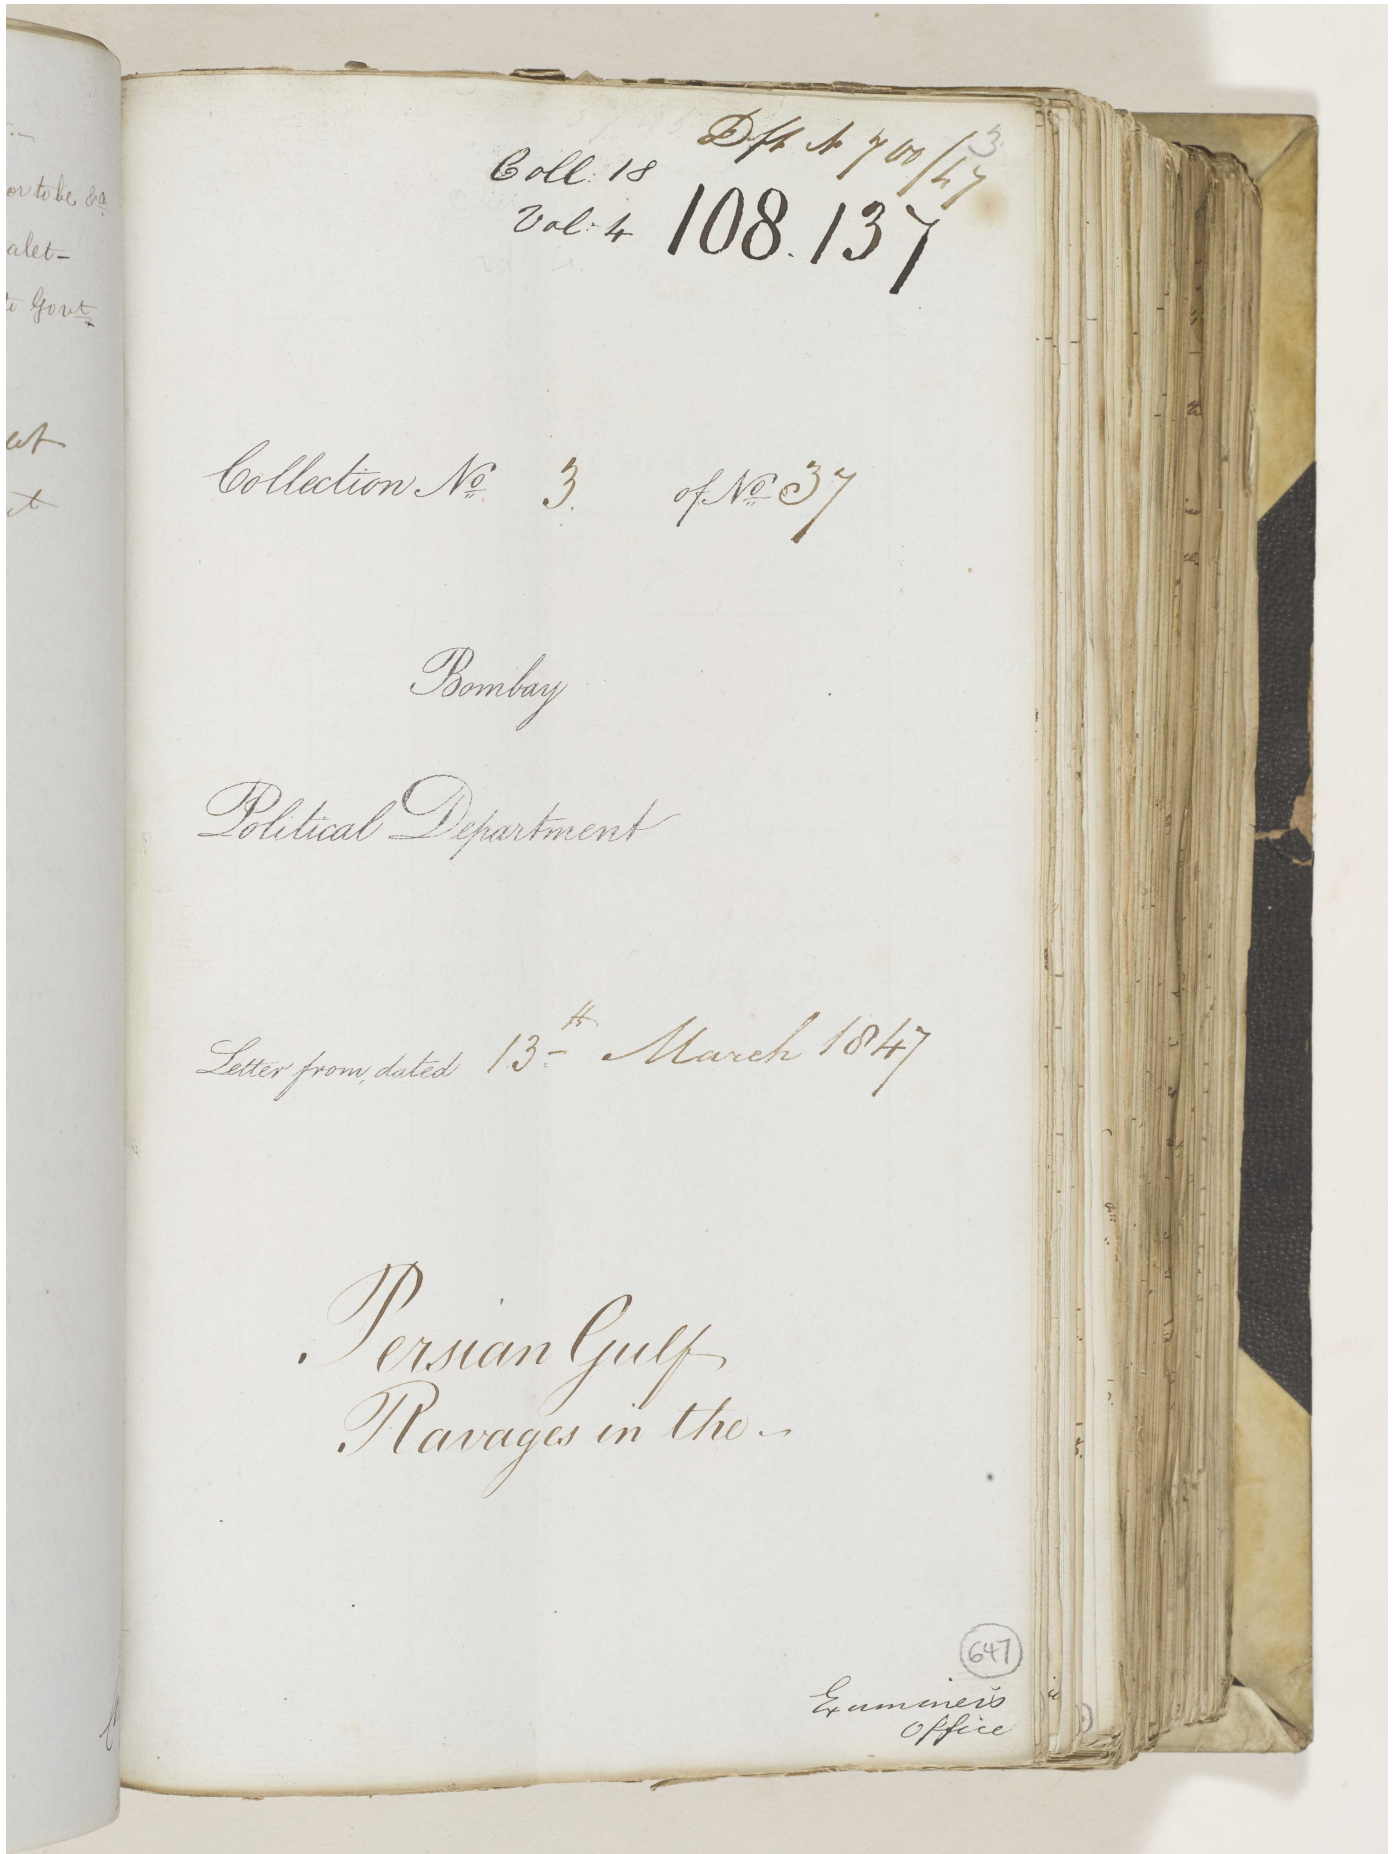 or to be &a
alet-
to Govt
3
Dft No 700/47
Coll: 18
Vol: 4
108.137
Collection No 3. of No 37
Bombay
Political Department
Letter from, dated 13th March 1847
Persian Gulf
Ravages in the -
647
Examiner's
Office